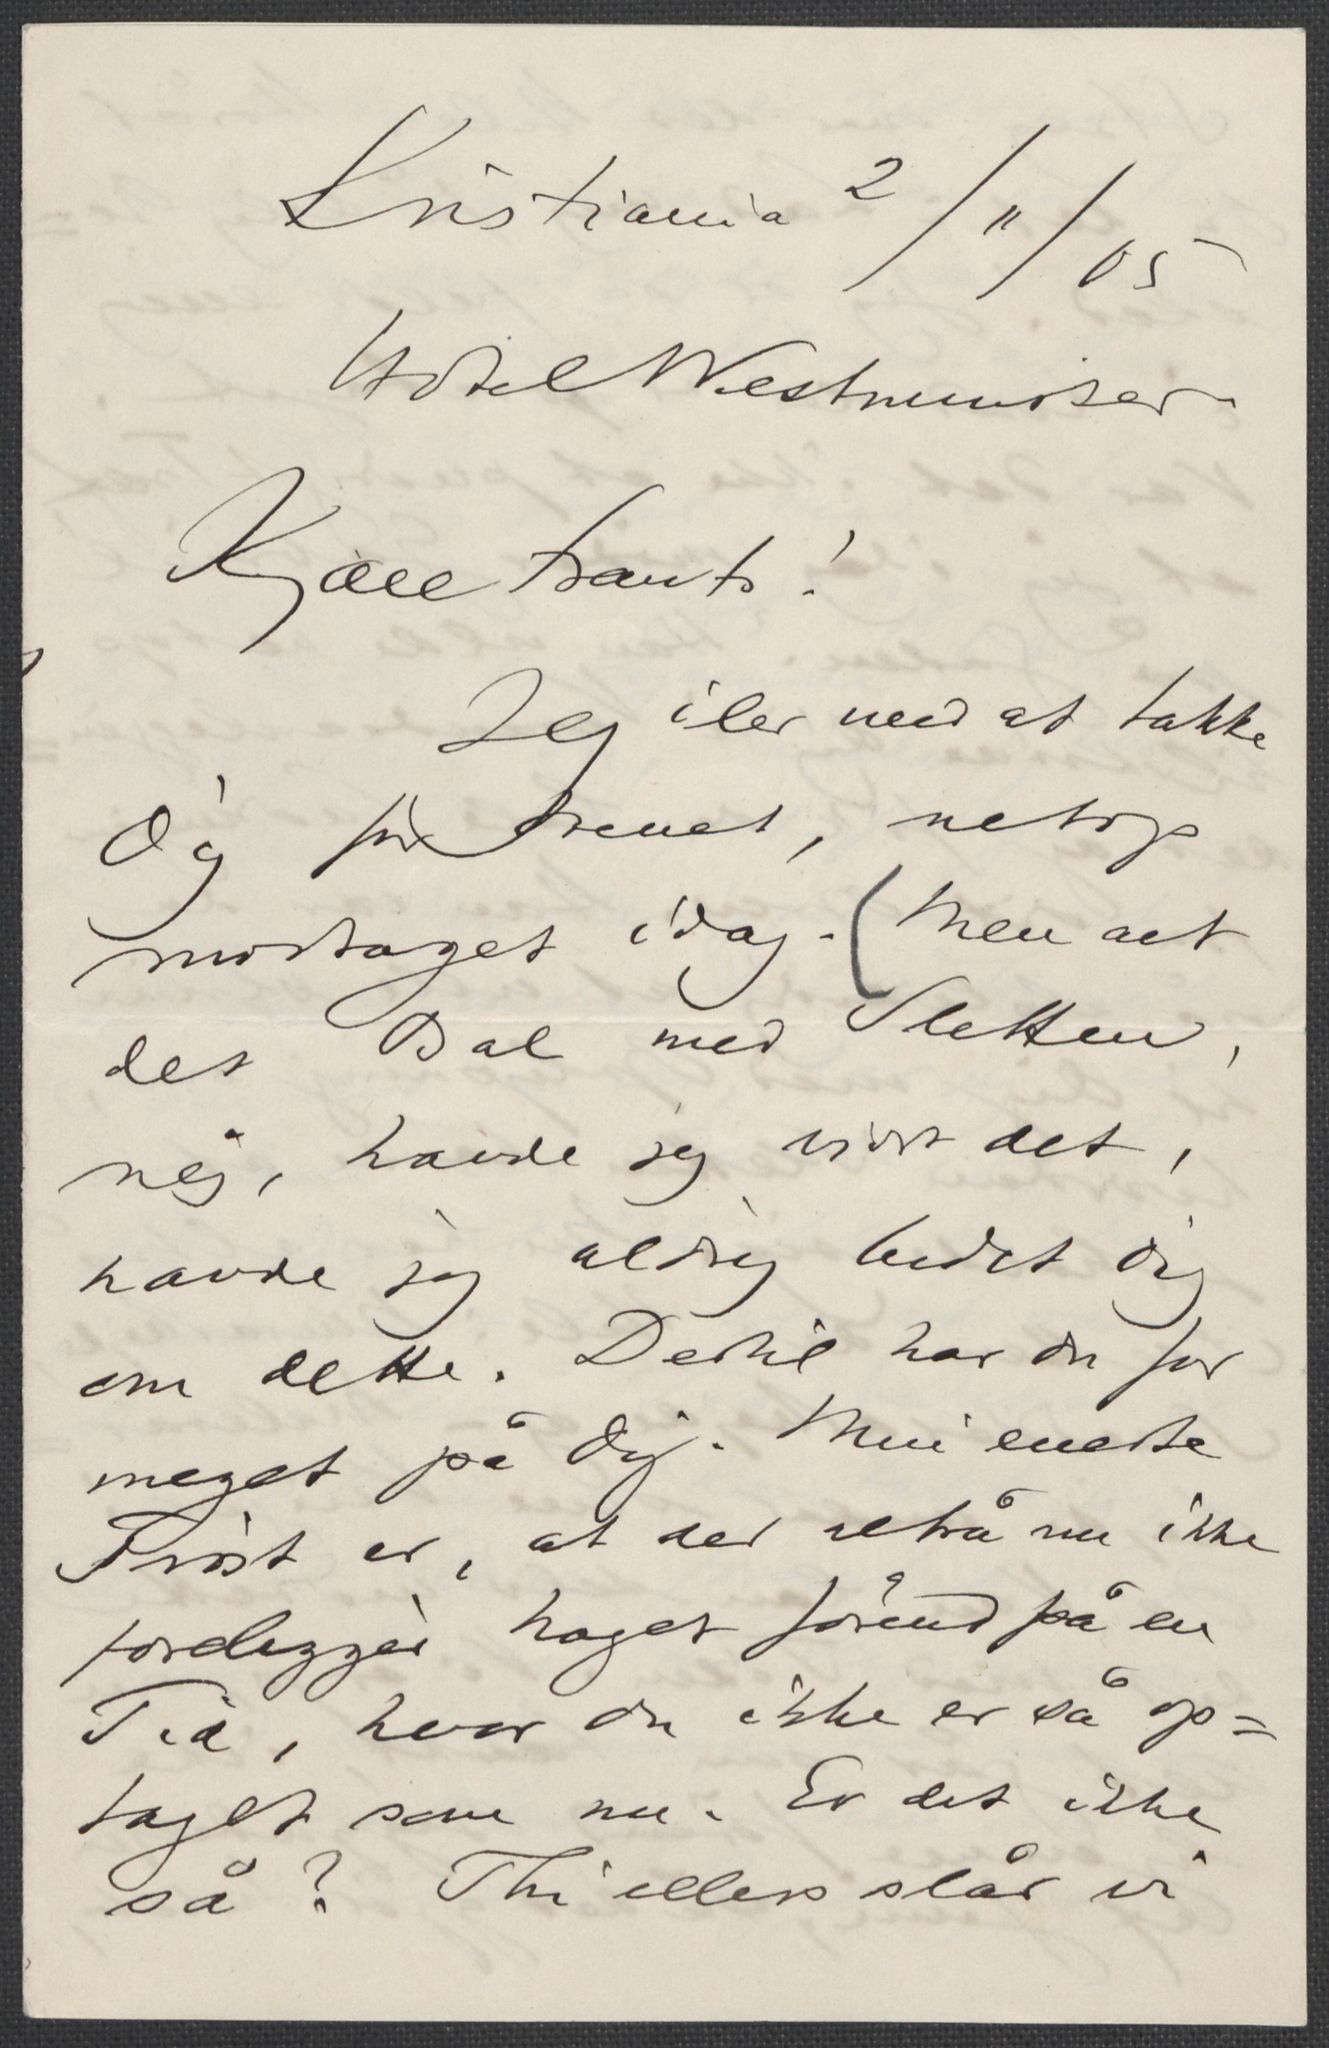 Kristiania 2/11/05
Hotel Westminster.
Kjære Frants!
Jeg iler med at takke
Dig for Brevet, netop
modtaget idag. (Men at
det Bal med Sletten,
nej, havde jeg vidst det,
havde jeg aldrig bedet Dig
om dette. Dertil har du for
meget på Dig. Min eneste
Trøst er, at der altså nu ikke
foreligger noget förend på en
Tid, hvor du ikke er så op=
taget som nu. Er det ikke
så? Thi ellers slår vi